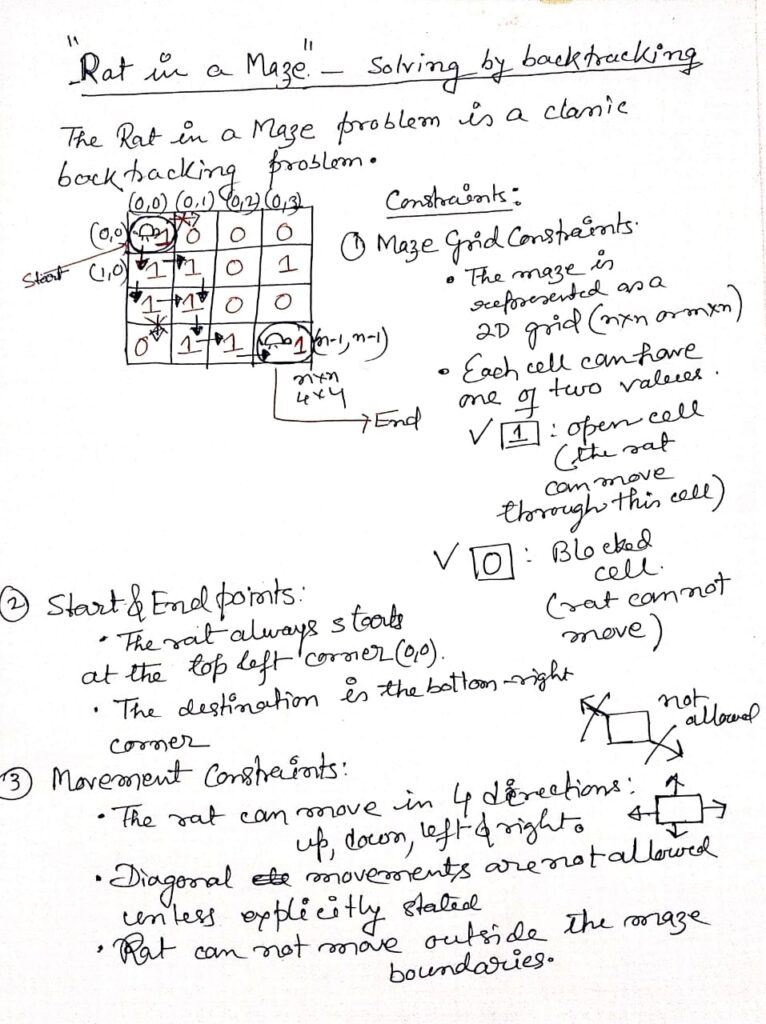 "Rat in a Maze" - Solving by backtracking
The Rat in a Maze problem is a classic
backtracking problem.
(0,0) (0,1) (0,2) (0,3)
(0,0) 1 0 0 0
Start (1,0) 1 1 0 1
1 1 0 0
0 1 1 1 (n-1, n-1)
n×n
4×4
End
Constraints:
① Maze Grid Constraints.
• The maze is
represented as a
2D grid (n×n or m×n)
• Each cell can have
one of two values.
✓ 1 : open cell
(the rat
can move
through this cell)
✓ 0 : Blocked
cell.
(rat can not
move)
② Start & End points:
• The rat always starts
at the top left corner (0,0).
• The destination is the bottom-right
corner
not
allowed
③ Movement Constraints:
• The rat can move in 4 directions:
up, down, left & right.
• Diagonal movements are not allowed
unless explicitly stated
• Rat can not move outside the maze
boundaries.